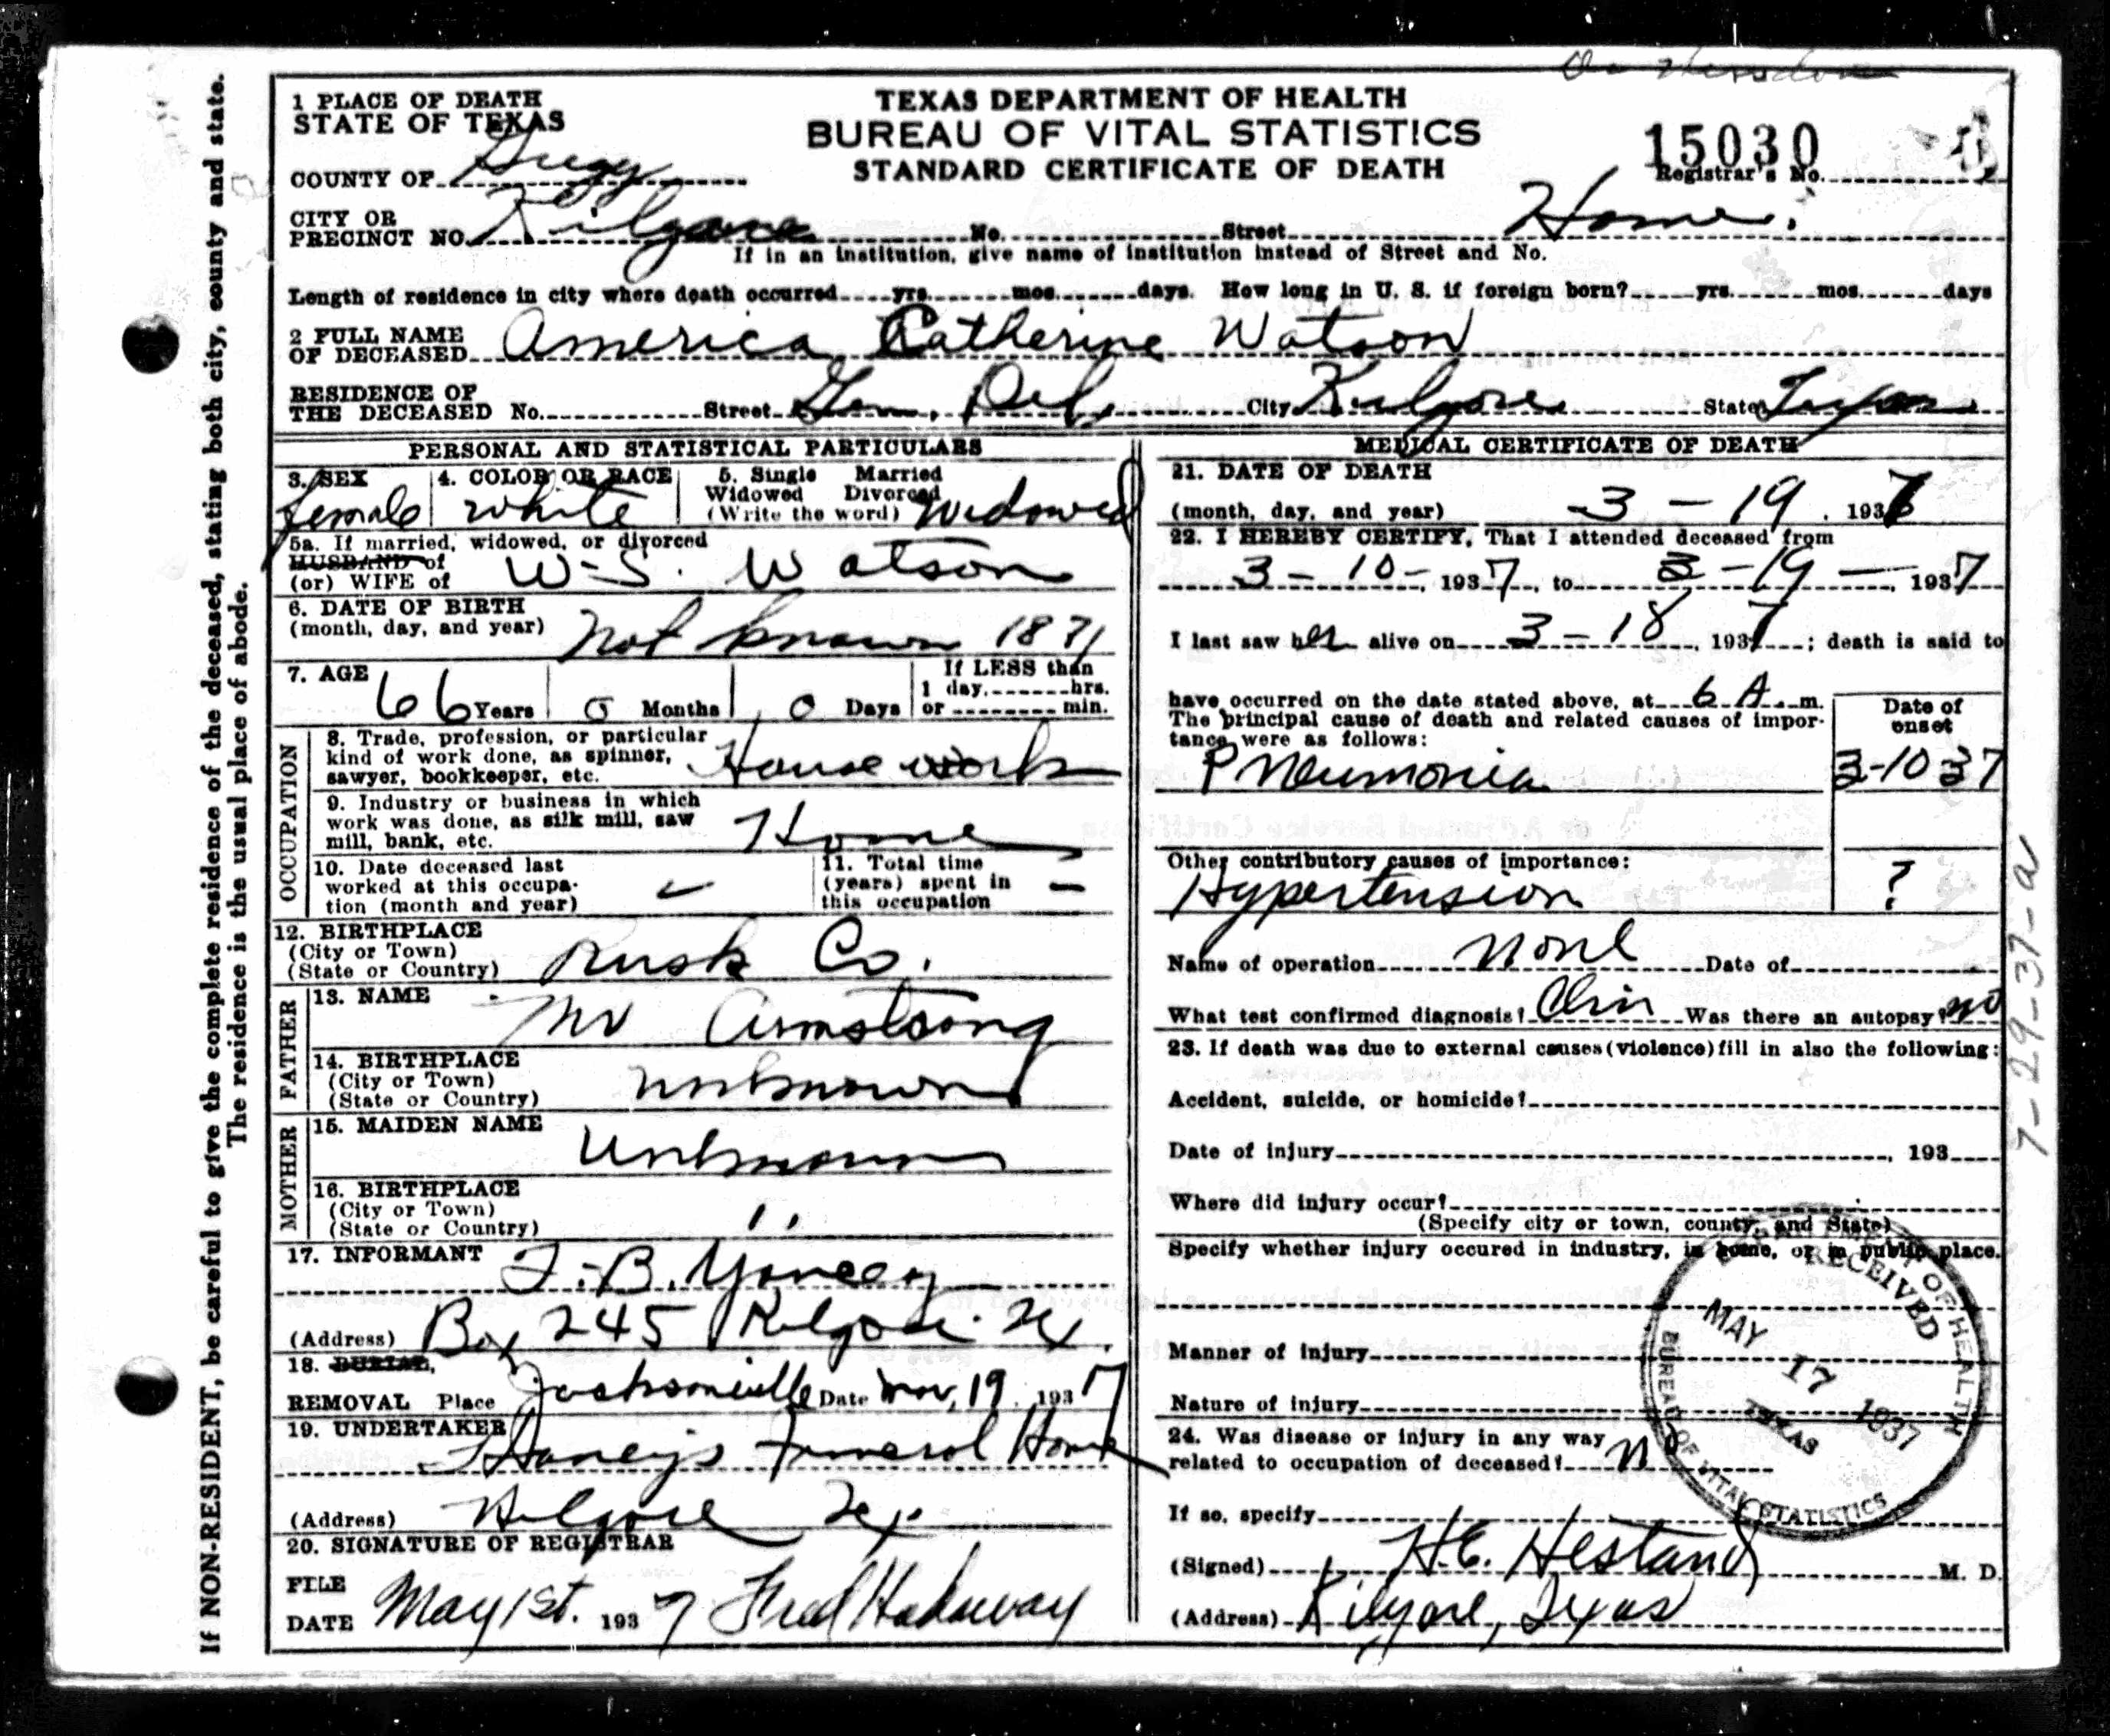 1 PLACE OF DEATH
STATE OF TEXAS
TEXAS DEPARTMENT OF HEALTH
BUREAU OF VITAL STATISTICS
STANDARD CERTIFICATE OF DEATH
15030
Registrar's No.
COUNTY OF Gregg
CITY OR
PRECINCT NO. Kilgore No. Street Home.
If in an institution, give name of institution instead of Street and No.
Length of residence in city where death occurred yrs. mos. days. How long in U. S. if foreign born? yrs. mos. days
2 FULL NAME
OF DECEASED America Catherine Watson
RESIDENCE OF
THE DECEASED No. Street Gen. Del. City Kilgore State Texas
PERSONAL AND STATISTICAL PARTICULARS
3. SEX female
4. COLOR OR RACE white
5. Single Married
Widowed Divorced
(Write the word) Widowed
5a. If married, widowed, or divorced
HUSBAND of
(or) WIFE of W-S. Watson
6. DATE OF BIRTH
(month, day, and year) Not known 1871
7. AGE 66 Years 0 Months 0 Days
If LESS than
1 day, hrs.
or min.
OCCUPATION
8. Trade, profession, or particular
kind of work done, as spinner,
sawyer, bookkeeper, etc. House work
9. Industry or business in which
work was done, as silk mill, saw
mill, bank, etc. Home
10. Date deceased last
worked at this occupa-
tion (month and year) -
11. Total time
(years) spent in
this occupation -
12. BIRTHPLACE
(City or Town)
(State or Country) Rusk Co.
FATHER
13. NAME Mr Armstrong
14. BIRTHPLACE
(City or Town)
(State or Country) unknown
MOTHER
15. MAIDEN NAME Unknown
16. BIRTHPLACE
(City or Town)
(State or Country) ''
17. INFORMANT B. Yancey
(Address) Box 245 Kilgore Tex.
18. BURIAL,
REMOVAL Place Jacksonville Date 19, 1937
19. UNDERTAKER
Haney's Funeral Home
(Address) Kilgore Tex.
20. SIGNATURE OF REGISTRAR
FILE
DATE May 1st. 1937 Fred Hadaway
MEDICAL CERTIFICATE OF DEATH
21. DATE OF DEATH
(month, day, and year) 3 - 19, 1937
22. I HEREBY CERTIFY, That I attended deceased from
3 - 10 -, 1937, to 3 - 19 -, 1937
I last saw her alive on 3 - 18, 1937; death is said to
have occurred on the date stated above, at 6 A. m.
The principal cause of death and related causes of impor-
tance were as follows:
Date of
onset
Pneumonia 3-10 37
Other contributory causes of importance:
Hypertension ?
Name of operation none Date of
What test confirmed diagnosis? Clin Was there an autopsy? no
23. If death was due to external causes (violence) fill in also the following:
Accident, suicide, or homicide?
Date of injury , 193
Where did injury occur?
(Specify city or town, county, and State)
Specify whether injury occured in industry, in home, or in public place.
Manner of injury
Nature of injury
24. Was disease or injury in any way
related to occupation of deceased? no
If so, specify
(Signed) H.C. Hestand M. D.
(Address) Kilgore, Texas
DEPARTMENT OF HEALTH
RECEIVED
MAY 17 1937
TEXAS
BUREAU OF VITAL STATISTICS
7-29-37-a
If NON-RESIDENT, be careful to give the complete residence of the deceased, stating both city, county and state.
The residence is the usual place of abode.